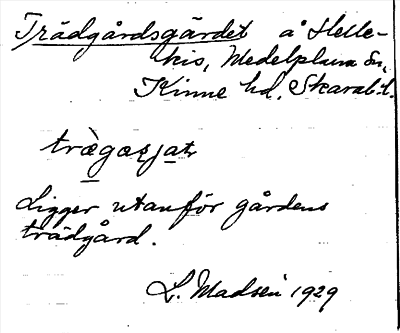 Trädgårdsgärdet å Helle-
kis, Medelplana sn,
Kinne hd. Skarab. l.
Ligger utanför gårdens
trädgård.
L. Madsén 1929